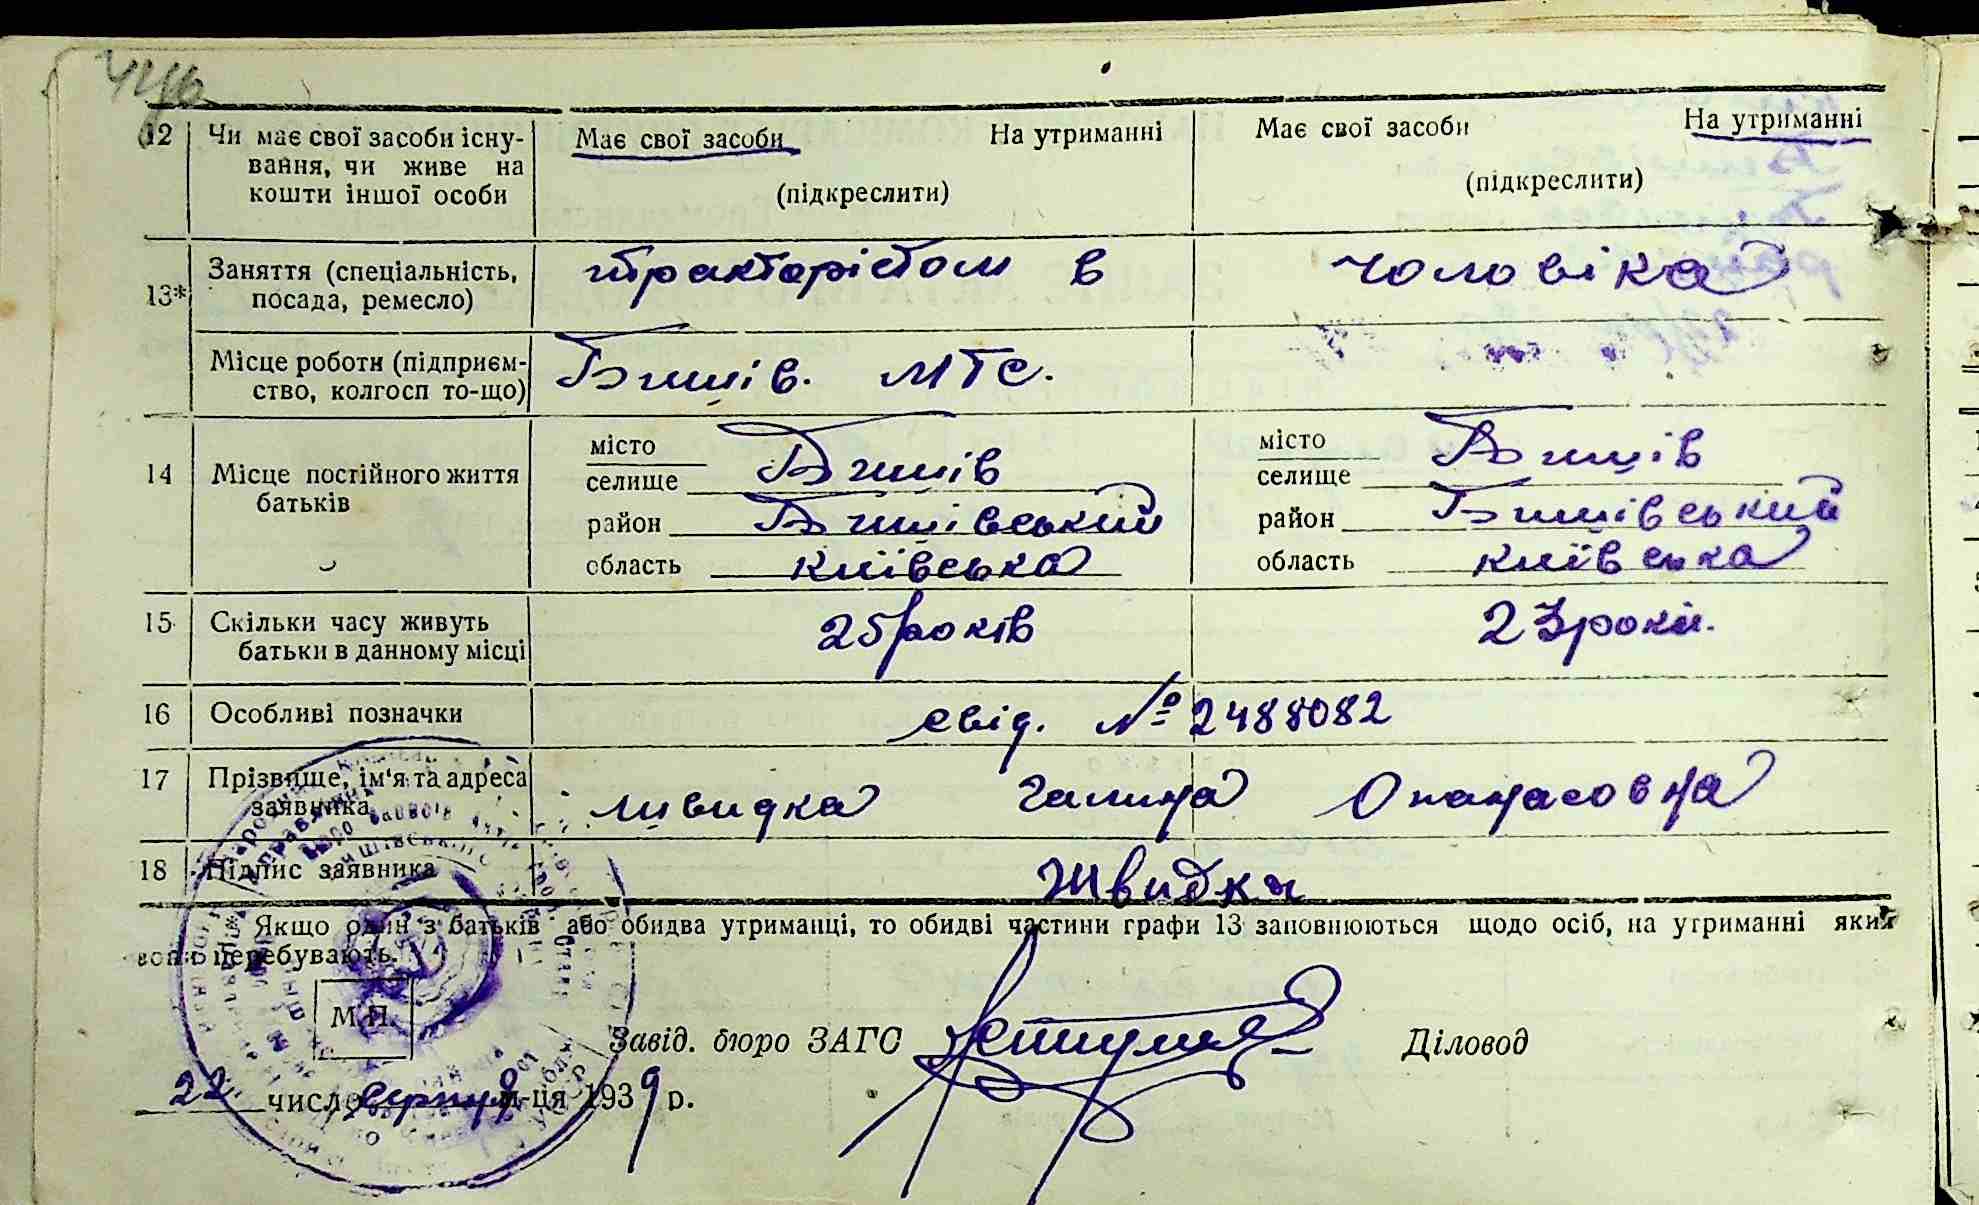 12 Чи має свої засоби існу- Має свої засоби На утриманні Має свої засоби На утриманні
вання, чи живе на
кошти іншої особи (підкреслити) (підкреслити)
13* Заняття (спеціальність, трактарістом в чоловіка
посада, ремесло)
Місце роботи (підприєм- Бишів. МТС.
ство, колгосп то-що)
14 Місце постійного життя місто Бишів місто Бишів
батьків селище селище
район Бишівський район Бишівський
область київська область київська
15 Скільки часу живуть 25 років 23 роки.
батьки в данному місці
16 Особливі позначки свід. № 2488082
17 Прізвище, ім'я та адреса швидка галина Опанасовна
заявника
18 Підпис заявника Швидка
* Якщо один з батьків або обидва утриманці, то обидві частини графи 13 заповнюються щодо осіб, на утриманні яких
вони перебувають.
М.П.
Завід. бюро ЗАГС Діловод
22 число серпня м-ця 1939 р.